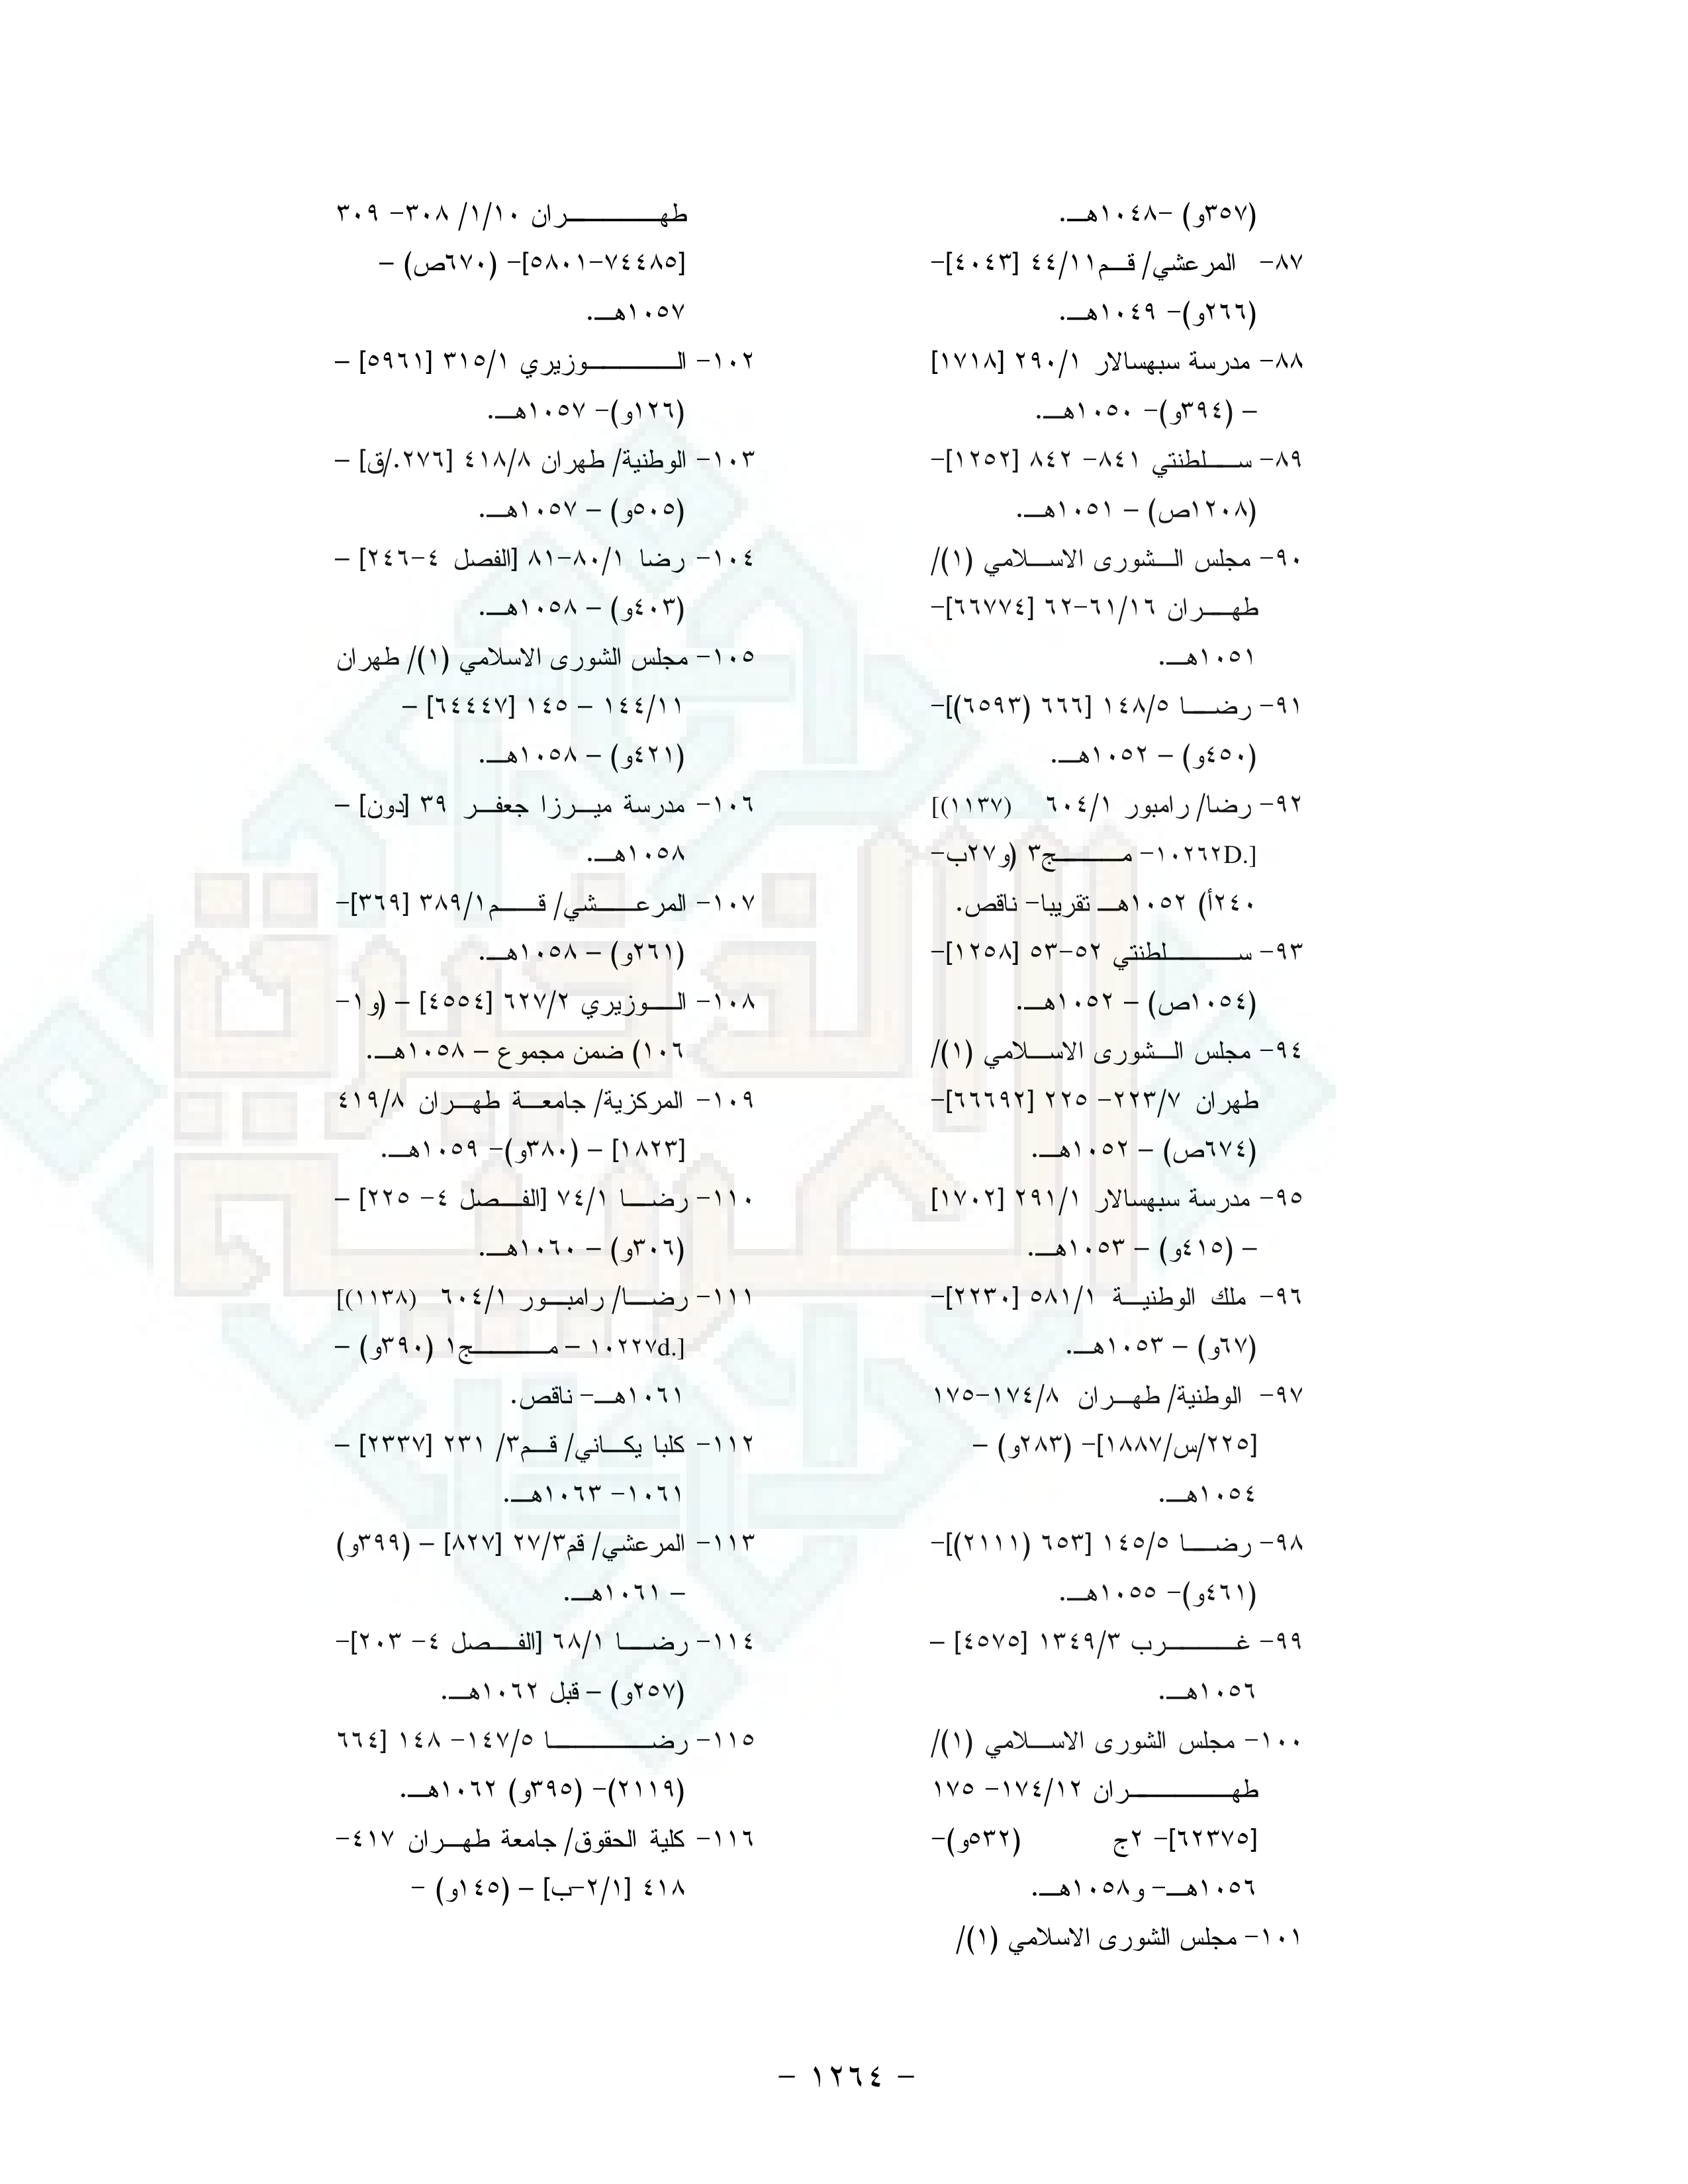 (٣٥٧و) -١٠٤٨هـ.
٨٧- المرعشي/ قم٤٤/١١ [٤٠٤٣]-
(٢٦٦و)- ١٠٤٩هـ.
٨٨- مدرسة سبهسالار ٢٩٠/١ [١٧١٨]
– (٣٩٤و)- ١٠٥٠هـ.
٨٩- سلطنتي ٨٤١- ٨٤٢ [١٢٥٢]-
(١٢٠٨ص) – ١٠٥١هـ.
٩٠- مجلس الشورى الاسلامي (١)/
طهران ٦١/١٦-٦٢ [٦٦٧٧٤]-
١٠٥١هـ.
٩١- رضا ١٤٨/٥ [٦٦٦ (٦٥٩٣)]-
(٤٥٠و) – ١٠٥٢هـ.
٩٢- رضا/ رامبور ٦٠٤/١ (١١٣٧)]
[.١٠٢٦٢D- مج٣ (و٢٧ب-
٢٤٠أ) ١٠٥٢هـ تقريبا- ناقص.
٩٣- سلطنتي ٥٢-٥٣ [١٢٥٨]-
(١٠٥٤ص) – ١٠٥٢هـ.
٩٤- مجلس الشورى الاسلامي (١)/
طهران ٢٢٣/٧- ٢٢٥ [٦٦٦٩٢]-
(٦٧٤ص) – ١٠٥٢هـ.
٩٥- مدرسة سبهسالار ٢٩١/١ [١٧٠٢]
– (٤١٥و) – ١٠٥٣هـ.
٩٦- ملك الوطنية ٥٨١/١ [٢٢٣٠]-
(٦٧و) – ١٠٥٣هـ.
٩٧- الوطنية/ طهران ١٧٤/٨-١٧٥
[٢٢٥/س/١٨٨٧]- (٢٨٣و) –
١٠٥٤هـ.
٩٨- رضا ١٤٥/٥ [٦٥٣ (٢١١١)]-
(٤٦١و)- ١٠٥٥هـ.
٩٩- غرب ١٣٤٩/٣ [٤٥٧٥] –
١٠٥٦هـ.
١٠٠- مجلس الشورى الاسلامي (١)/
طهران ١٧٤/١٢- ١٧٥
[٦٢٣٧٥]- ٢ج (٥٣٢و)-
١٠٥٦هـ- و١٠٥٨هـ.
١٠١- مجلس الشورى الاسلامي (١)/
طهران ١/١٠/ ٣٠٨- ٣٠٩
[٧٤٤٨٥-٥٨٠١]- (٦٧٠ص) –
١٠٥٧هـ.
١٠٢- الوزيري ٣١٥/١ [٥٩٦١] –
(١٢٦و)- ١٠٥٧هـ.
١٠٣- الوطنية/ طهران ٤١٨/٨ [٢٧٦./ق] –
(٥٠٥و) – ١٠٥٧هـ.
١٠٤- رضا ٨٠/١-٨١ [الفصل ٤-٢٤٦] –
(٤٠٣و) – ١٠٥٨هـ.
١٠٥- مجلس الشورى الاسلامي (١)/ طهران
١٤٤/١١ – ١٤٥ [٦٤٤٤٧] –
(٤٢١و) – ١٠٥٨هـ.
١٠٦- مدرسة ميرزا جعفر ٣٩ [دون] –
١٠٥٨هـ.
١٠٧- المرعشي/ قم٣٨٩/١ [٣٦٩]-
(٢٦١و) – ١٠٥٨هـ.
١٠٨- الوزيري ٦٢٧/٢ [٤٥٥٤] – (و١-
١٠٦) ضمن مجموع – ١٠٥٨هـ.
١٠٩- المركزية/ جامعة طهران ٤١٩/٨
[١٨٢٣] – (٣٨٠و)- ١٠٥٩هـ.
١١٠- رضا ٧٤/١ [الفصل ٤- ٢٢٥] –
(٣٠٦و) – ١٠٦٠هـ.
١١١- رضا/ رامبور ٦٠٤/١ (١١٣٨)]
[.١٠٢٢٧d – مج١ (٣٩٠و) –
١٠٦١هـ- ناقص.
١١٢- كلبا يكاني/ قم٣/ ٢٣١ [٢٣٣٧] –
١٠٦١- ١٠٦٣هـ.
١١٣- المرعشي/ قم٢٧/٣ [٨٢٧] – (٣٩٩و)
– ١٠٦١هـ.
١١٤- رضا ٦٨/١ [الفصل ٤- ٢٠٣]-
(٢٥٧و) – قبل ١٠٦٢هـ.
١١٥- رضا ١٤٧/٥- ١٤٨ [٦٦٤
(٢١١٩)- (٣٩٥و) ١٠٦٢هـ.
١١٦- كلية الحقوق/ جامعة طهران ٤١٧-
٤١٨ [٢/١-ب] – (١٤٥و) -
- ١٢٦٤ -